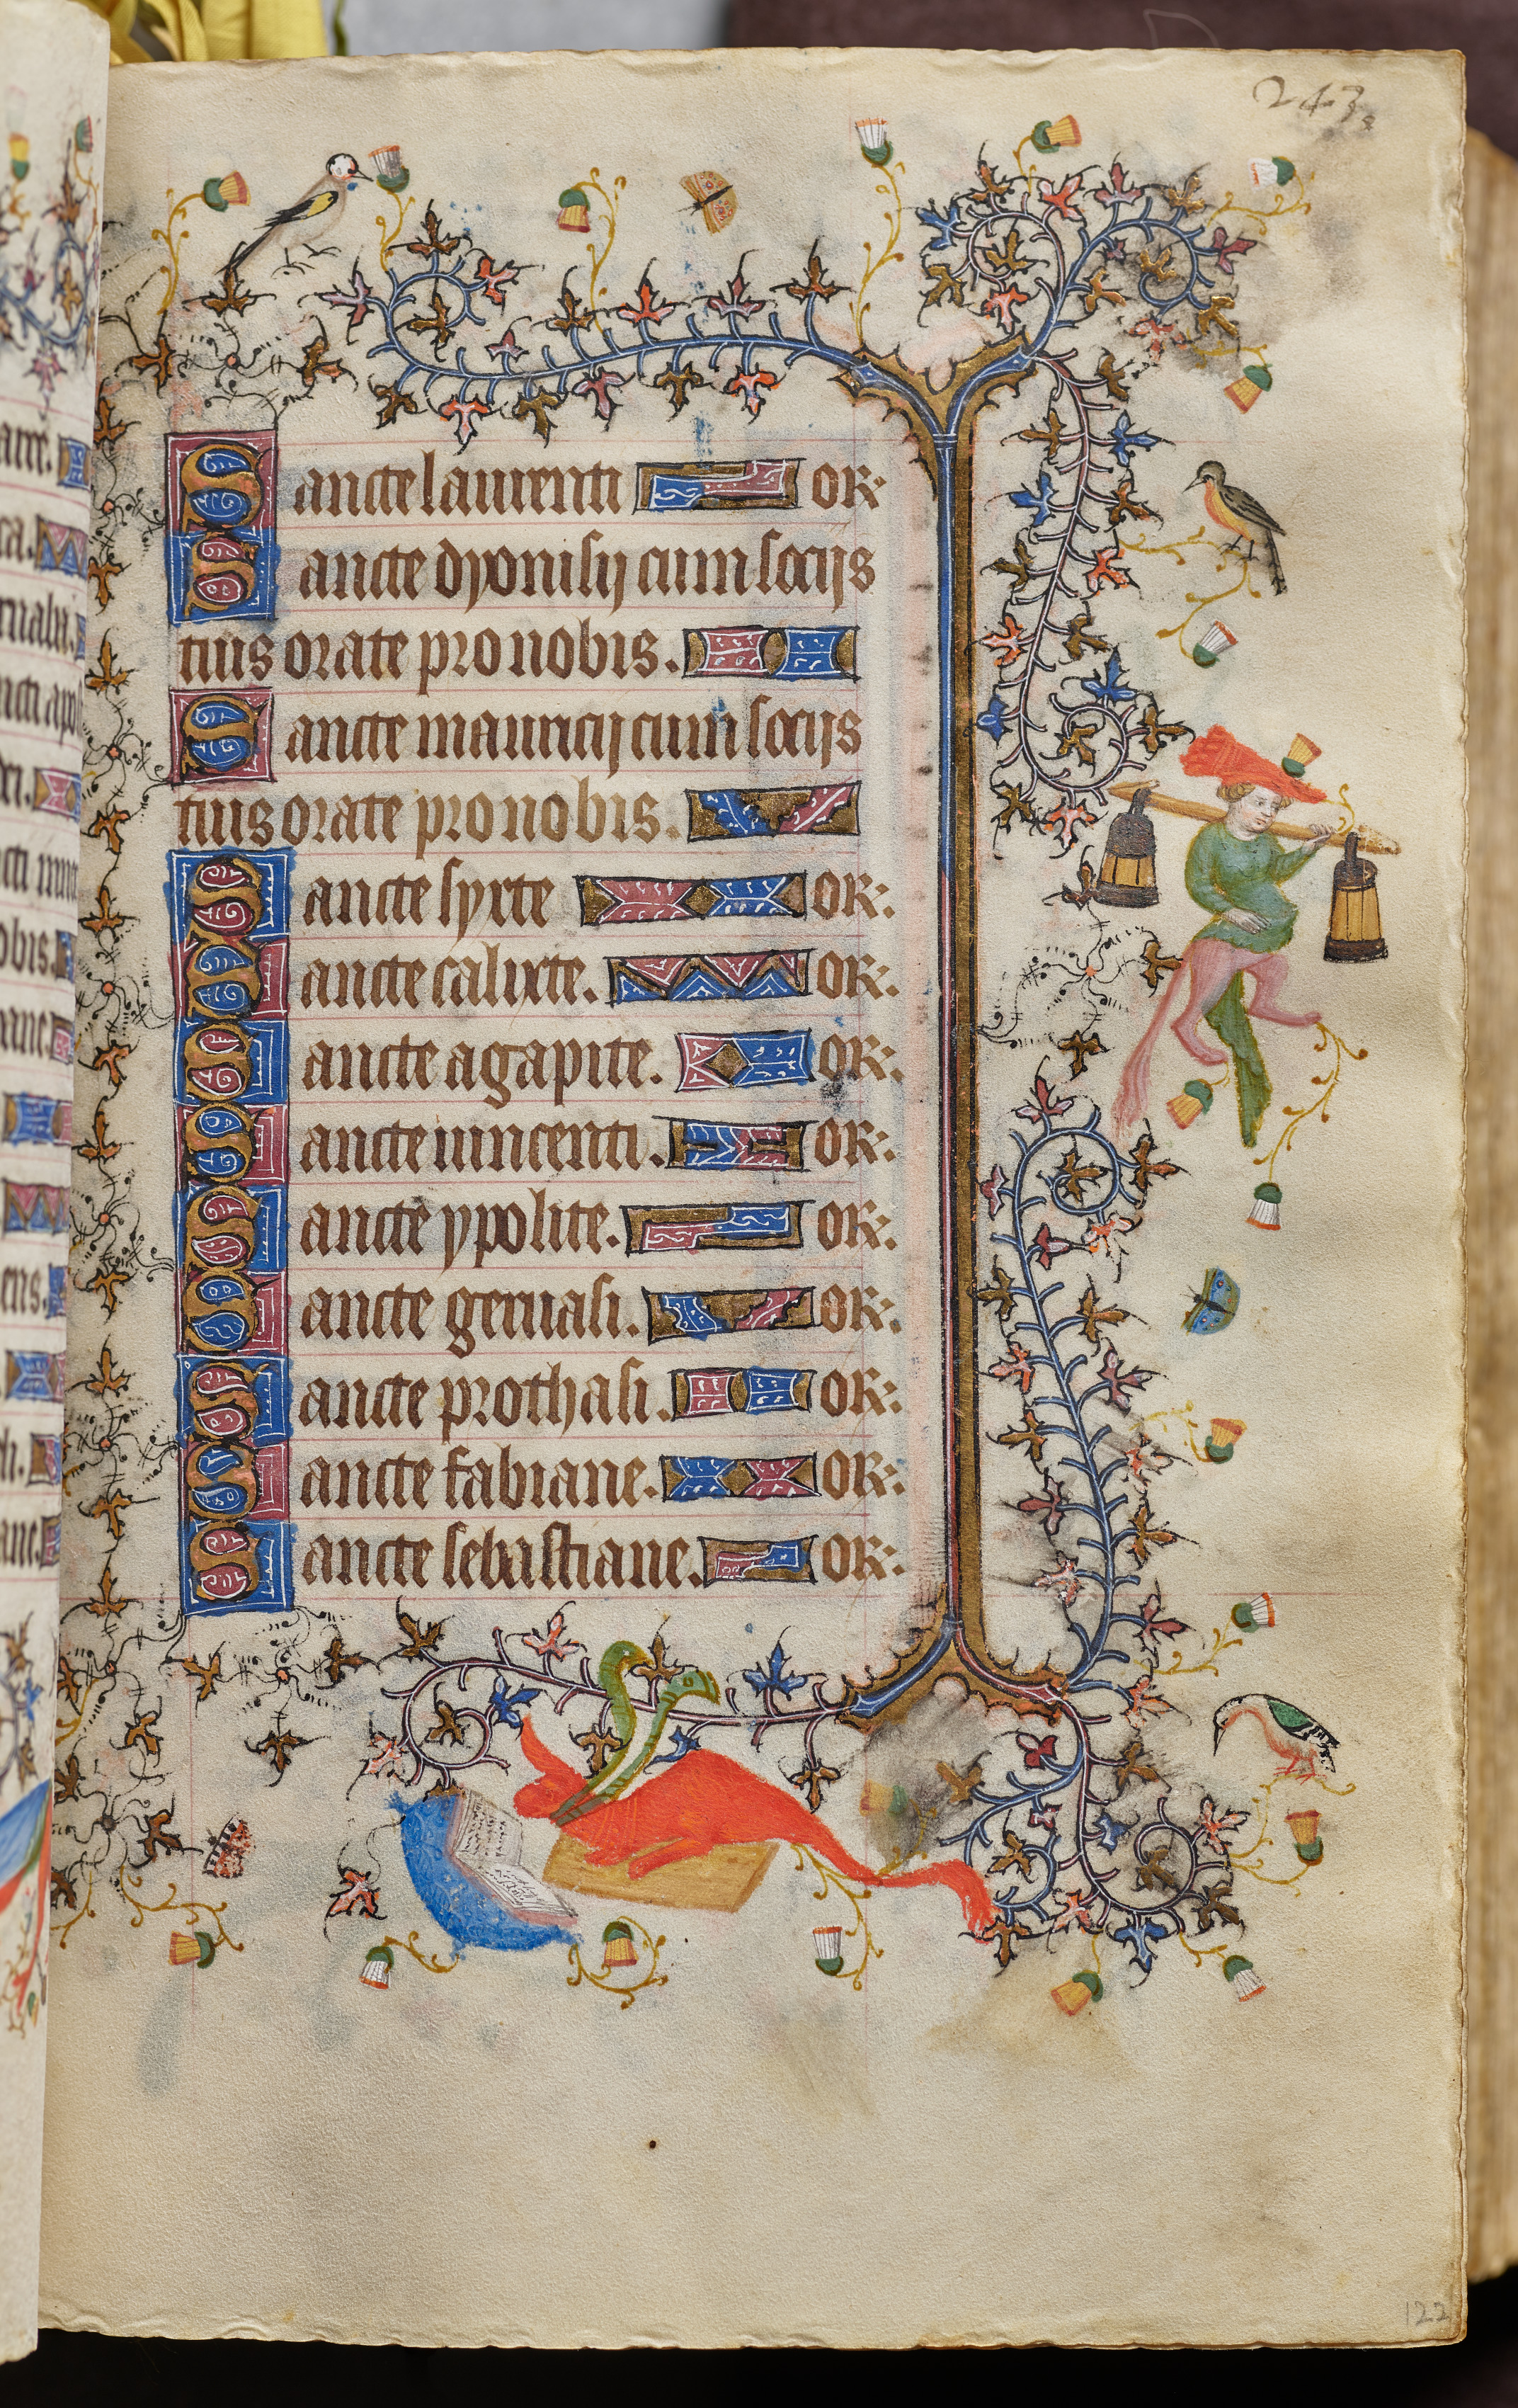 243
Sancte laurenti OR
Sancte dyonisij cum socijs
tuis orate pro nobis.
Sancte mauricij cum socijs
tuis orate pro nobis.
Sancte syxte OR:
Sancte calixte. OR:
Sancte agapite. OR:
Sancte uincenti. OR:
Sancte ypolite. OR:
Sancte geruasi. OR:
Sancte prothasi. OR:
Sancte fabiane. OR:
Sancte sebastiane. OR:
122